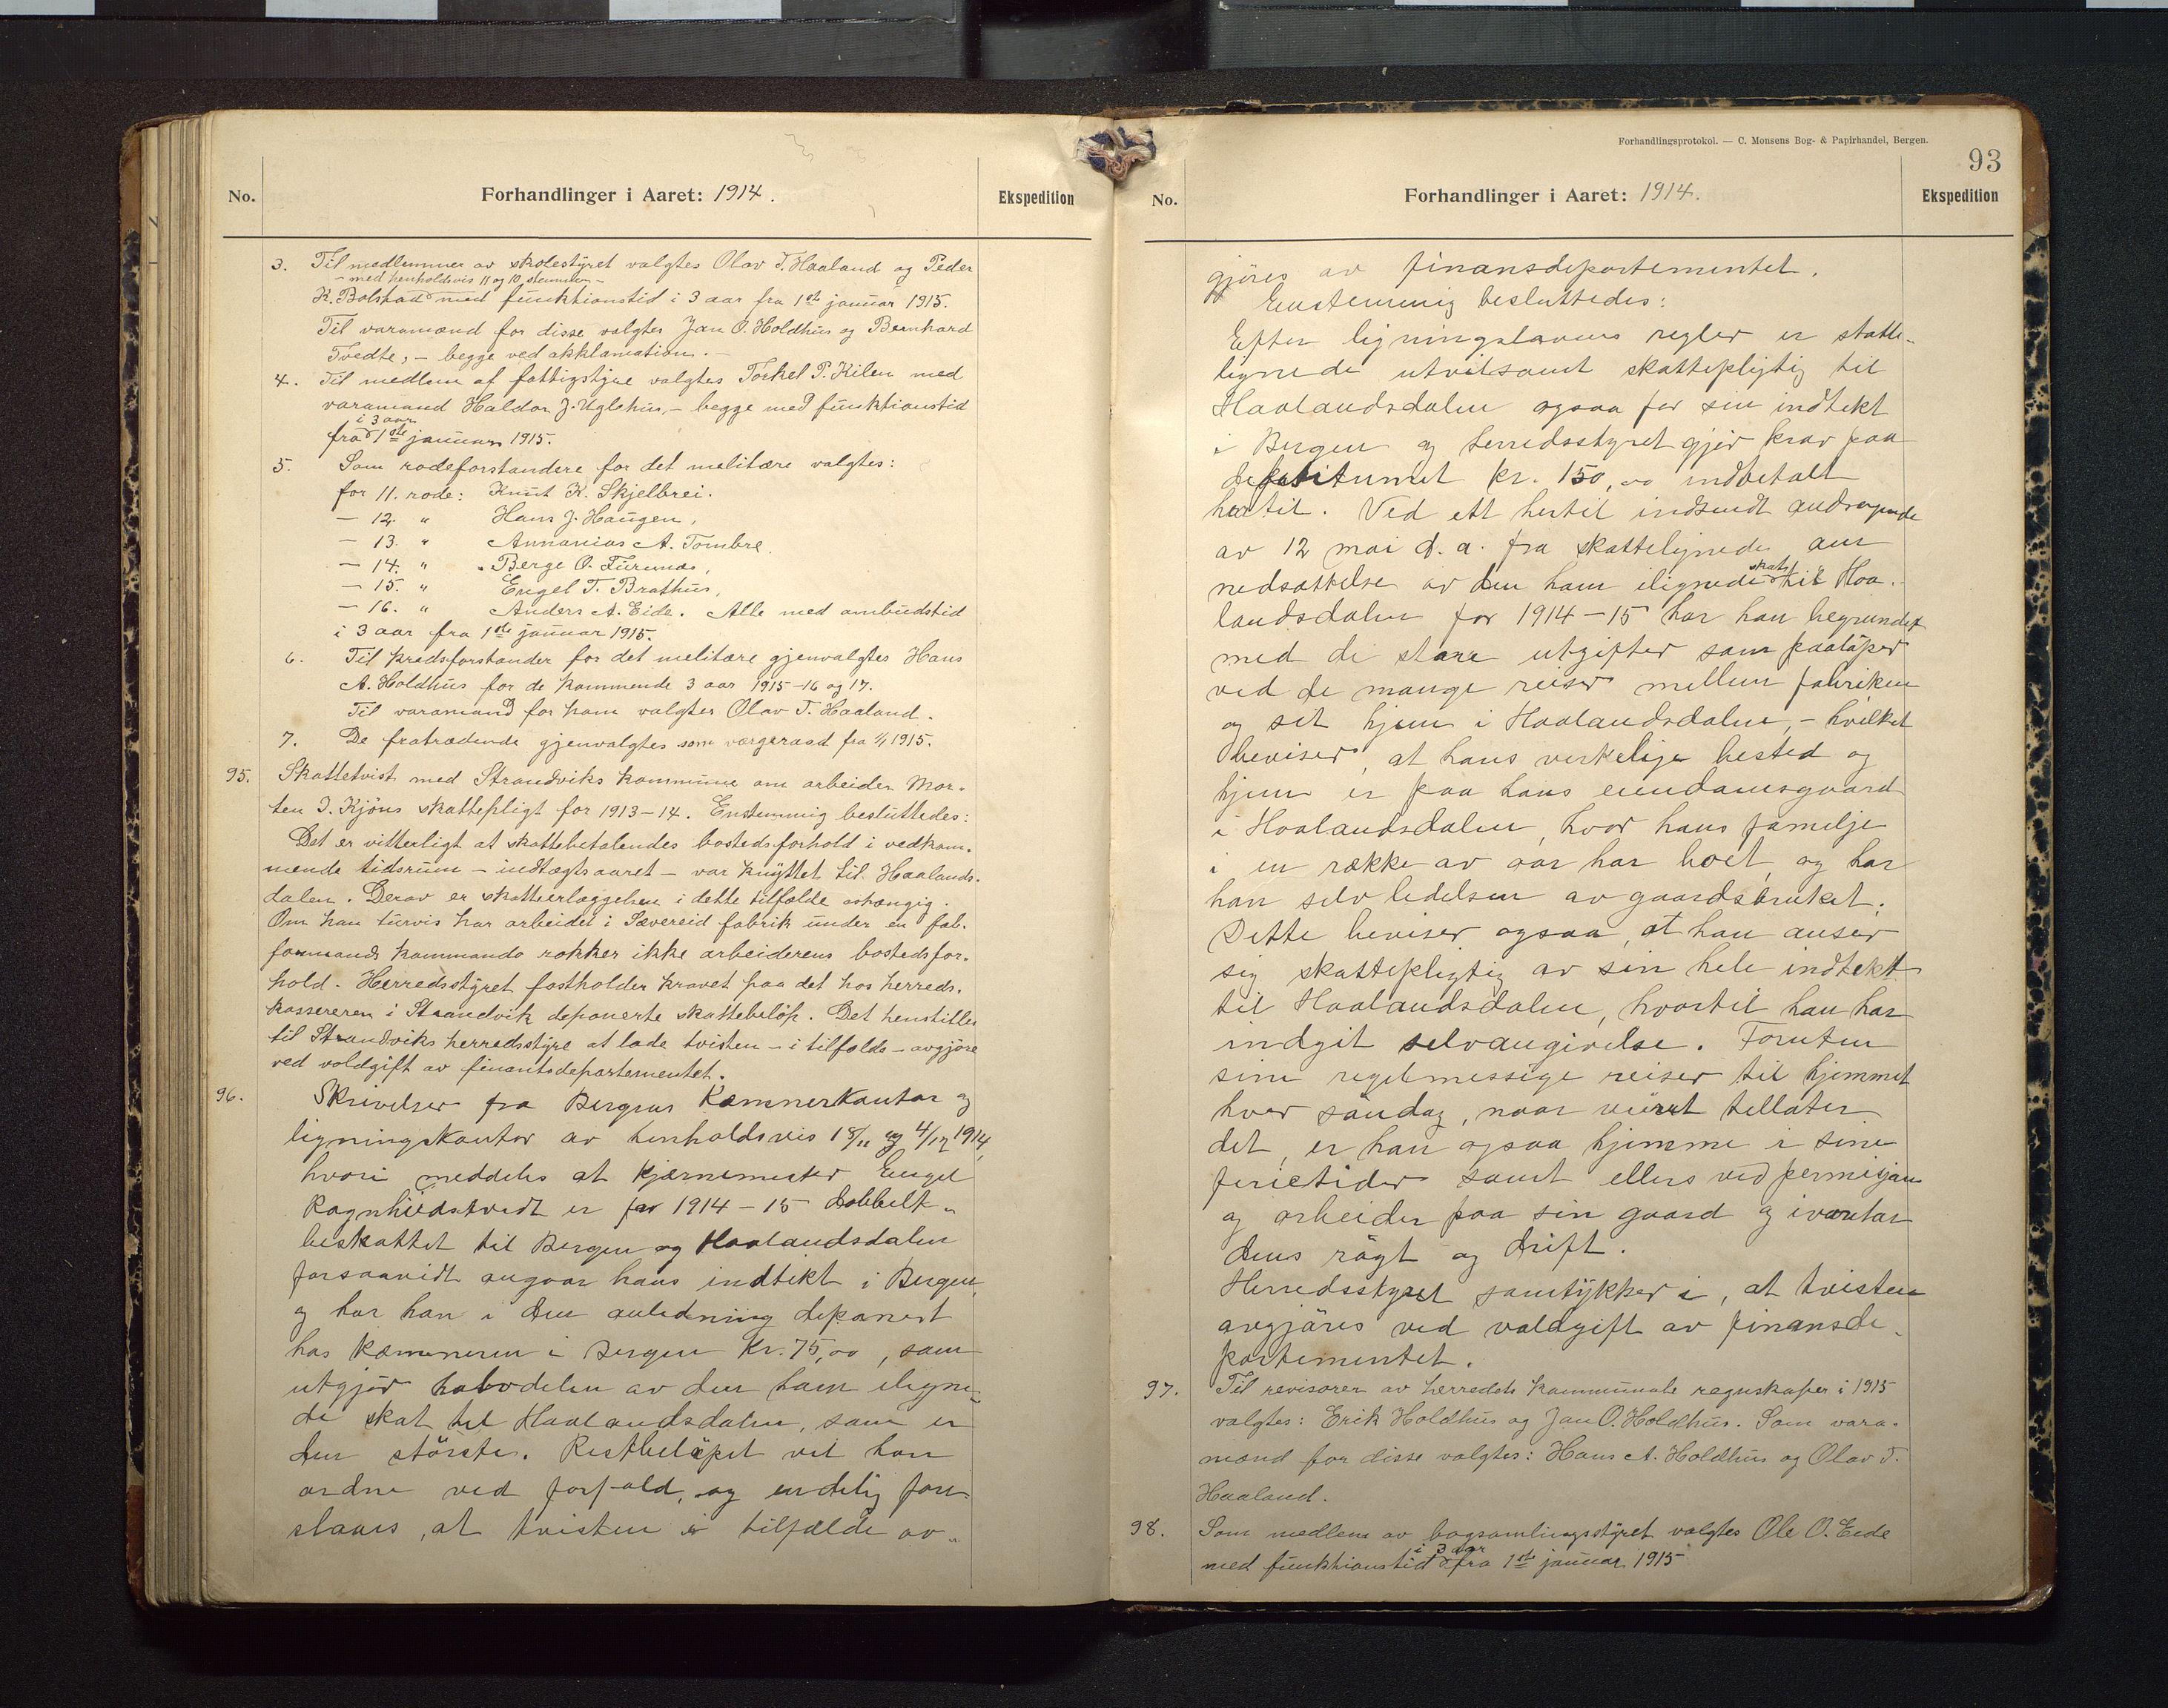 No.
Forhandlinger i Aaret: 1914.
Ekspedition
3. Til medlemmer av skolestyret valgtes Olav T. Haaland og Peder
- med henholdsvis 11 og 10 stemmer -
K. Bolstad med funktionstid i 3 aar fra 1ste januar 1915.
Til varamænd for disse valgtes Jan O. Holdhus og Bernhard
Tvedte, - begge ved akklamation. -
4. Til medlem af fattigstyre valgtes Torkel P. Kilen med
varamand Haldor J. Uglehus, - begge med funktionstid
i 3 aar
fra 1ste januar 1915.
5. Som rodeforstandere for det militære valgtes:
for 11. rode: Knut K. Skjelbrei.
- 12. " Hans J. Haugen,
- 13. " Annanias A. Tombre,
- 14. " Berge O. Furunæs,
- 15. " Engel T. Brathus,
- 16. " Anders A. Eide. Alle med ombudstid
i 3 aar fra 1ste januar 1915.
6. Til kredsforstander for det militære gjenvalgtes Hans
A. Holdhus for de kommende 3 aar 1915-16 og 17.
Til varamand for ham valgtes Olav T. Haaland.
7. De fratrædende gjenvalgtes som vergeraad fra 1/1 1915.
95. Skattetvist med Strandviks kommune om arbeider Mor-
ten I. Kjöns skattepligt for 1913-14. Enstemmig besluttedes:
Det er vitterligt at skattebetalendes bostedsforhold i vedkom-
mende tidsrum - indtægtsaaret - var knyttet til Haalands-
dalen. Derav er skatteerlæggelsen i dette tilfælde avhængig.
Om han turvis har arbeidet i Sævereid fabrik under en fab.
formands kommando rokker ikke arbeiderens bostedsfor-
hold. Herredsstyret fastholder kravet paa det hos herreds-
kassereren i Strandvik deponerte skattebelöp. Det henstilles
til Strandviks herredsstyre at lade tvisten - i tilfælde - avgjöre
ved voldgift av finantsdepartementet.
96. Skrivelser fra Bergens Kæmnerkontor og
ligningskontor av henholdsvis 18/11 og 4/12 1914,
hvori meddeles at kjærnemester Engel
Ragnhildstvedt er for 1914-15 dobbelt-
beskattet til Bergen og Haalandsdalen
forsaavidt angaar hans indtekt i Bergen,
og har han i den anledning deponert
hos kæmneren i Bergen Kr. 75,00, som
utgjör halvdelen av den ham iligne-
de skat til Haalandsdalen, som er
den störste. Restbelöpet vil han
ordne ved forfald, og endelig fore-
slaaes, at tvisten i tilfælde av-
Forhandlingsprotokol. — C. Monsens Bog- & Papirhandel, Bergen.
93
No.
Forhandlinger i Aaret: 1914.
Ekspedition
gjöres av finansdepartementet.
Enstemmig besluttedes:
Efter ligningslovens regler er skatte-
lignede utvilsomt skattepligtig til
Haalandsdalen ogsaa for sin indtekt
i Bergen og herredsstyret gjör krav paa
depositumet kr. 150,00 indbetalt
hertil. Ved ett hertil indsendt andragende
av 12 mai d.a. fra skattelignede om
nedsættelse av den ham ilignede skat til Haa-
landsdalen for 1914-15 har han begrundet
med de store utgifter som paalöper
ved de mange reiser mellem fabriken
og sit hjem i Haalandsdalen, - hvilket
beviser, at hans virkelige bosted og
hjem er paa hans eiendomsgaard
i Haalandsdalen, hvor hans familje
i en række av aar har boet, og har
han selv ledelsen av gaardsbruket.
Dette beviser ogsaa, at han anser
sig skattepligtig av sin hele indtekt
til Haalandsdalen, hvortil han har
indgit selvangivelse. Foruten
sine regelmessige reiser til hjemmet
hver söndag, naar veiret tillater
det, er han ogsaa hjemme i sine
ferietider samt ellers ved permisjon
og arbeider paa sin gaard og ivaretar
dens rögt og drift.
Herredsstyret samtykker i, at tvisten
avgjöres ved voldgift av finansde-
partementet.
97. Til revisorer av herredets kommunale regnskaper i 1915
valgtes: Erik Holdhus og Jan O. Holdhus. Som vara-
mænd for disse valgtes: Hans A. Holdhus og Olav T.
Haaland.
98. Som medlem av bogsamlingsstyret valgtes Ole O. Eide
i 3 aar
med funktionstid fra 1ste januar 1915